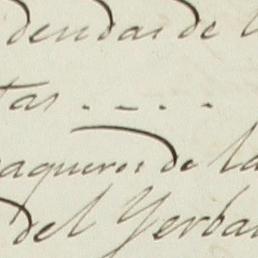 dendas de l
tas . - . .
aqueros de la
del Yerba